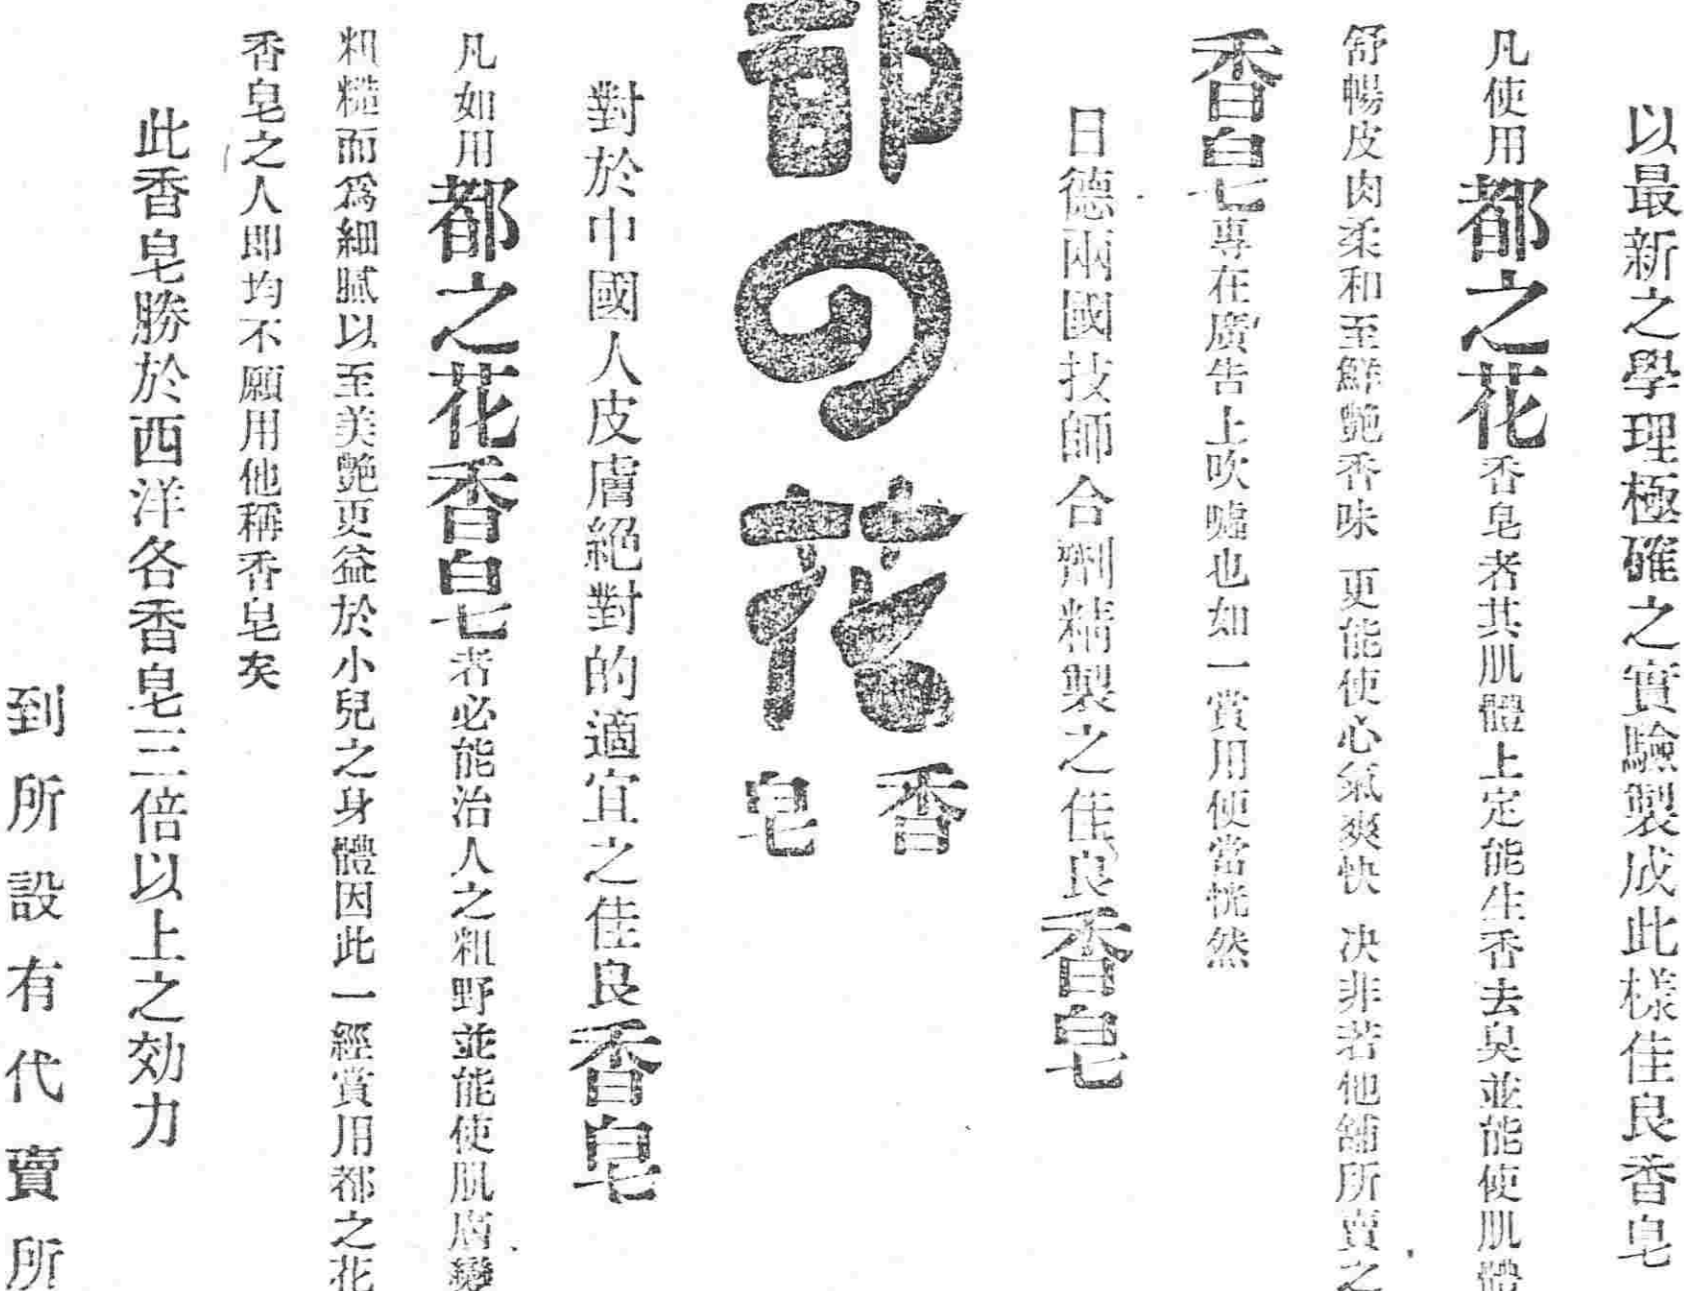 以最新之學理極確之實驗製成此樣佳良香皂
凡使用都之花香皂者其肌體上定能生香去臭並能使肌體
舒暢皮肉柔和至鮮艶香味更能使心氣爽快決非若他舖所賣之
香皂專在廣告上吹噓也如一賞用便當恍然
日德兩國技師合劑精製之佳良香皂
都の花
香皂
對於中國人皮膚絕對的適宜之佳良香皂
凡如用都之花香皂者必能治人之粗野並能使肌膚變
粗糙而爲細膩以至美艶更益於小兒之身體因此一經賞用都之花
香皂之人即均不願用他稱香皂矣
此香皂勝於西洋各香皂三倍以上之効力
到所設有代賣所